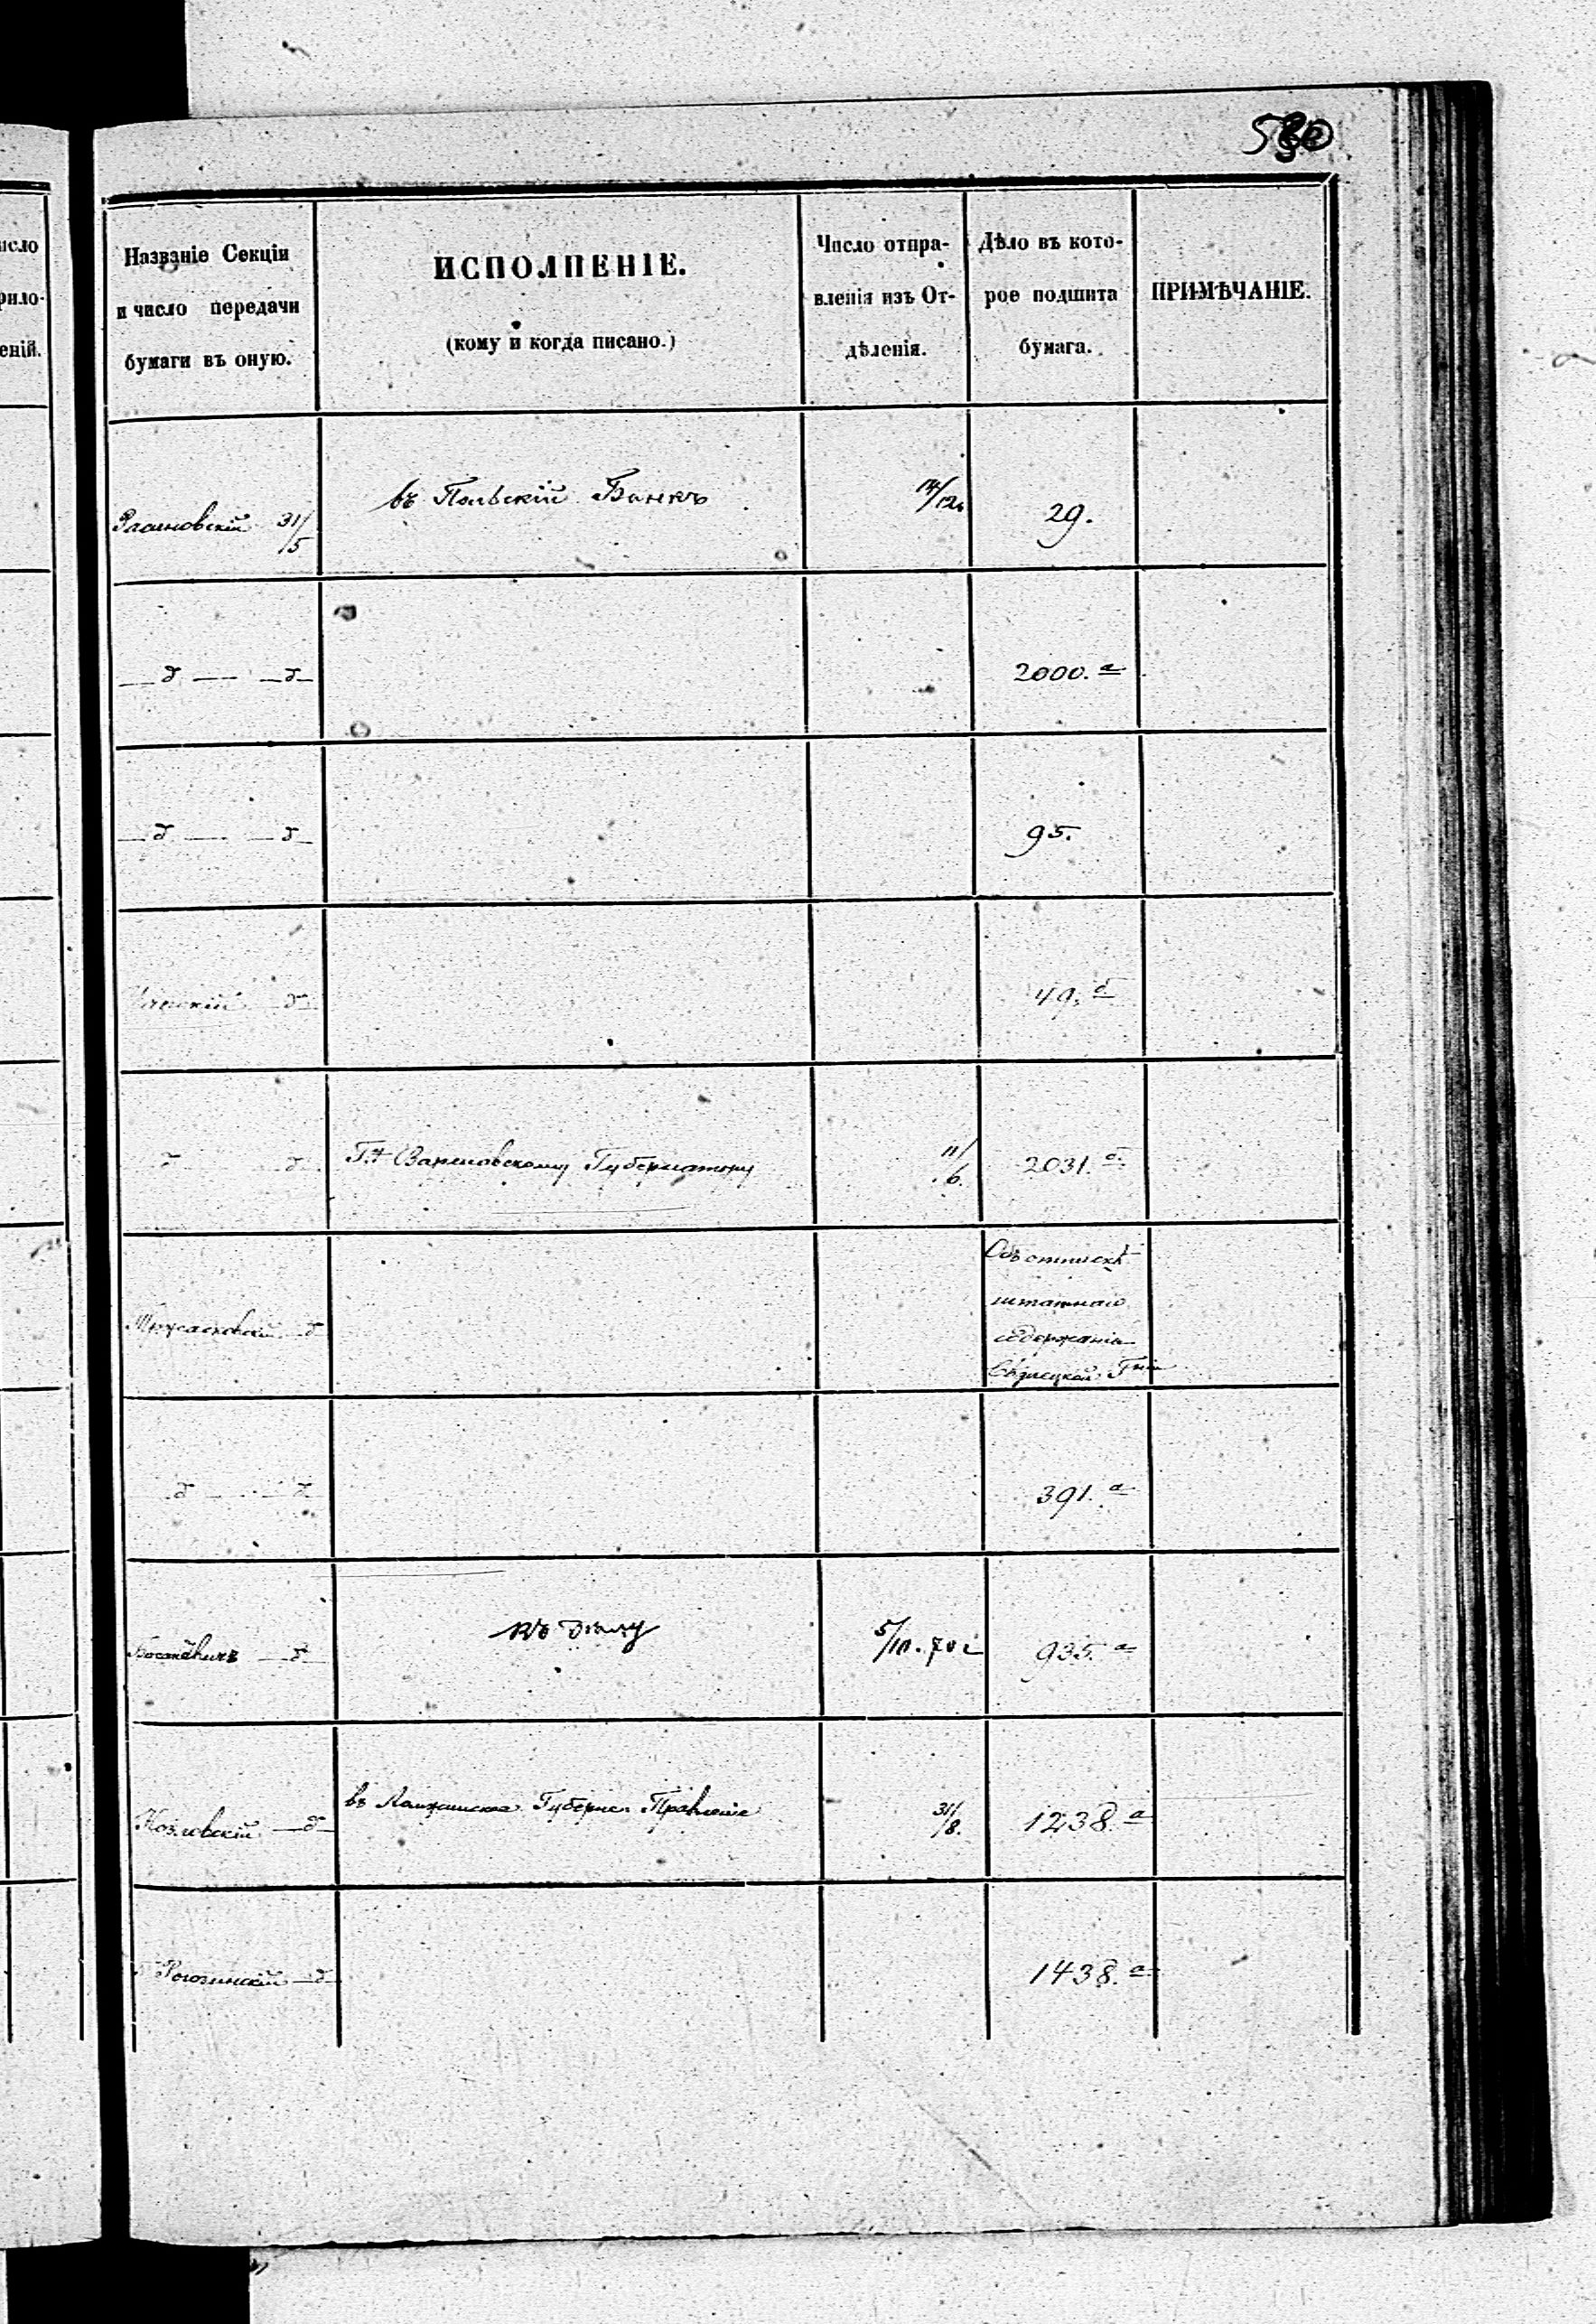 исло
рило-
еній.
Названіе Секціи
и число передачи
бумаги въ оную.
ИСПОЛНЕНІЕ.
(кому и когда писано.)
Число отпра-
вленія изъ От-
дѣленія.
Дѣло въ кото-
рое подшита
бумага.
ПРИМѢЧАНІЕ.
31/5
въ Польскій Банкъ
14/12
29.
— д — — д —
2000. а
— д — — д —
95.
д
49. б
д д
Варшавскому Губернатору
11/6.
2031. б
д
Объ отпискѣ
штатнаго
содержанія
д — — д
391. а
— д —
къ дѣлу
5/10. 70 г
935. а
Козловскій — д —
въ Ломжинское Губерн. Правленіе
31/8.
1238. а
Рогозинскій — д —
1438. а